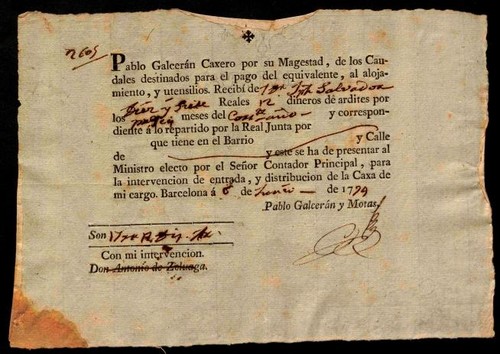 Pablo Galcerán Caxero por su Magestad, de los Cau-
dales destinados para el pago del equivalente, al aloja-
miento, y utensilios. Recibí de Salvador
Diez y Siete Reales dineros de ardites por
los meses del y correspon-
diente á lo repartido por la Real Junta por
que tiene en el Barrio y Calle
de y este se ha de presentar al
Ministro electo por el Señor Contador Principal, para
la intervencion de entrada, y distribucion de la Caxa de
mi cargo. Barcelona á 6 de de 1779
Pablo Galcerán y Motas.
Son
Con mi intervencion.
Don Antonio de Zuloaga.